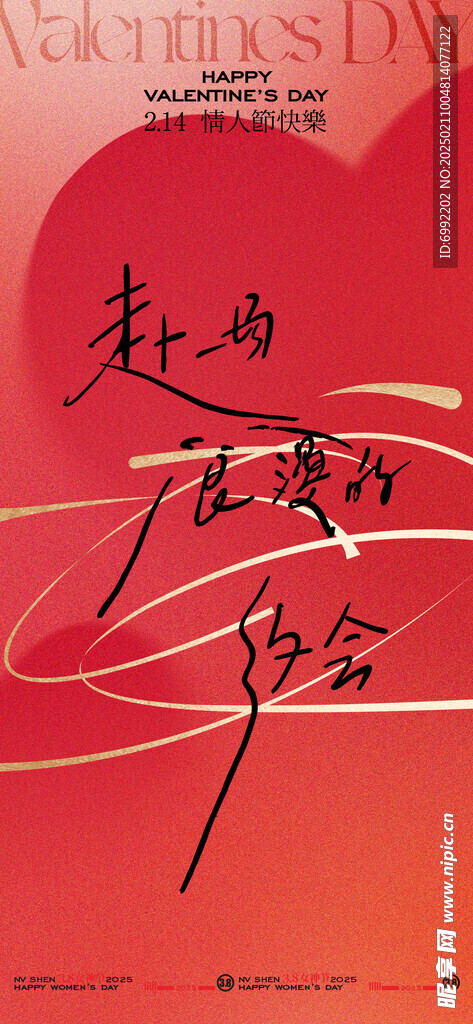 Valentines DAY
HAPPY
VALENTINE'S DAY
2.14 情人節快樂
ID:6992202 NO:20250211004814077122
赴一场
浪漫的
约会
昵享网 www.nipic.cn
NV SHEN 3.8女神节 2025
HAPPY WOMEN'S DAY
2025
3.8
NV SHEN 3.8女神节 2025
HAPPY WOMEN'S DAY
2025
3.8